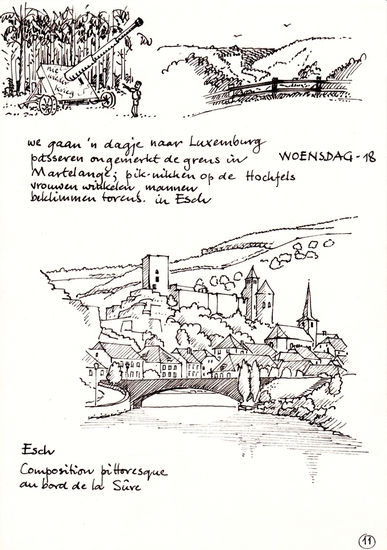 we gaan 'n dagje naar Luxemburg
passeren ongemerkt de grens in
WOENSDAG - 18
Martelange; pik-nikken op de Hochfels
vrouwen winkelen mannen
beklimmen torens. in Esch
Esch
Composition pittoresque
au bord de la Sûre
11